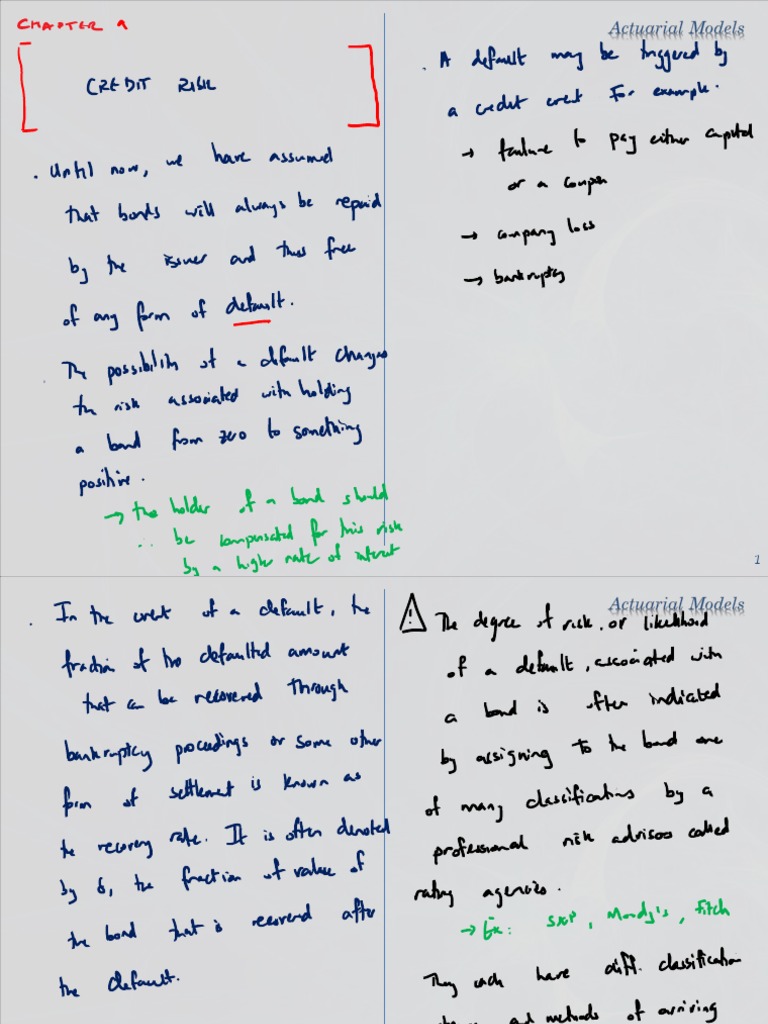 CHAPTER 9
CREDIT RISK
. Until now, we have assumed
that bonds will always be repaid
by the issuer and thus free
of any form of default.
. The possibility of a default changes
the risk associated with holding
a bond from zero to something
positive.
→ the holder of a bond should
∴ be compensated for this risk
by a higher rate of interest
Actuarial Models
. A default may be triggered by
a credit event for example.
→ failure to pay either capital
or a coupon
→ company loss
→ bankruptcy
1
. In the event of a default, the
fraction of the defaulted amount
that can be recovered through
bankruptcy proceedings or some other
form of settlement is known as
the recovery rate. It is often denoted
by δ, the fraction of value of
the bond that is recovered after
the default.
Actuarial Models
⚠ The degree of risk, or likelihood
of a default, associated with
a bond is often indicated
by assigning to the bond one
of many classifications by a
professional risk advisor called
rating agencies.
→ Ex: S&P, Moody's, Fitch
They each have diff. classification
and methods of arriving